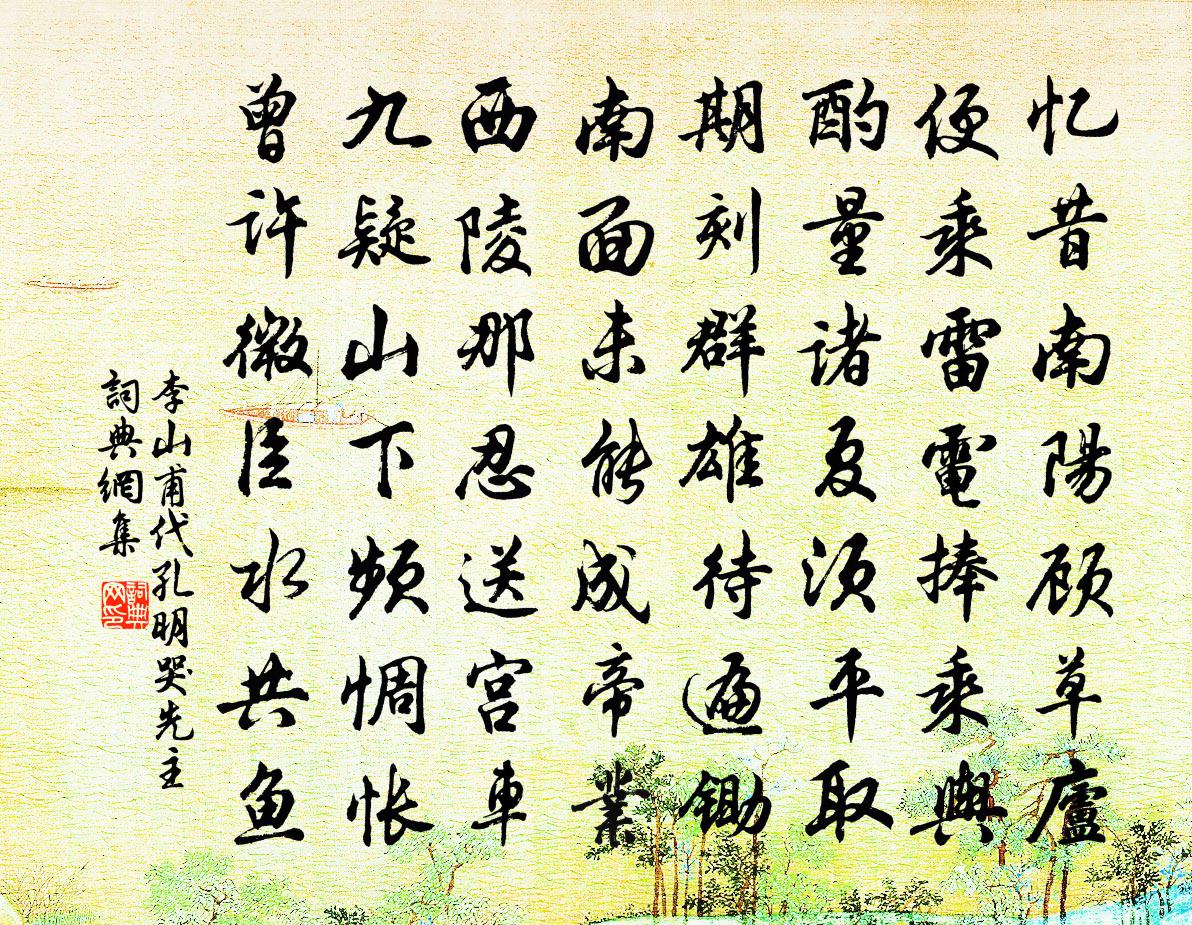 忆昔南陽顾草廬
便乘雷電捧乘輿
酌量诸夏须平取
期刻群雄待遍锄
南面未能成帝業
西陵那忍送宫車
九疑山下频惆怅
曾许微臣水共鱼
李山甫代孔明哭先主
詞典網集
詞典网印